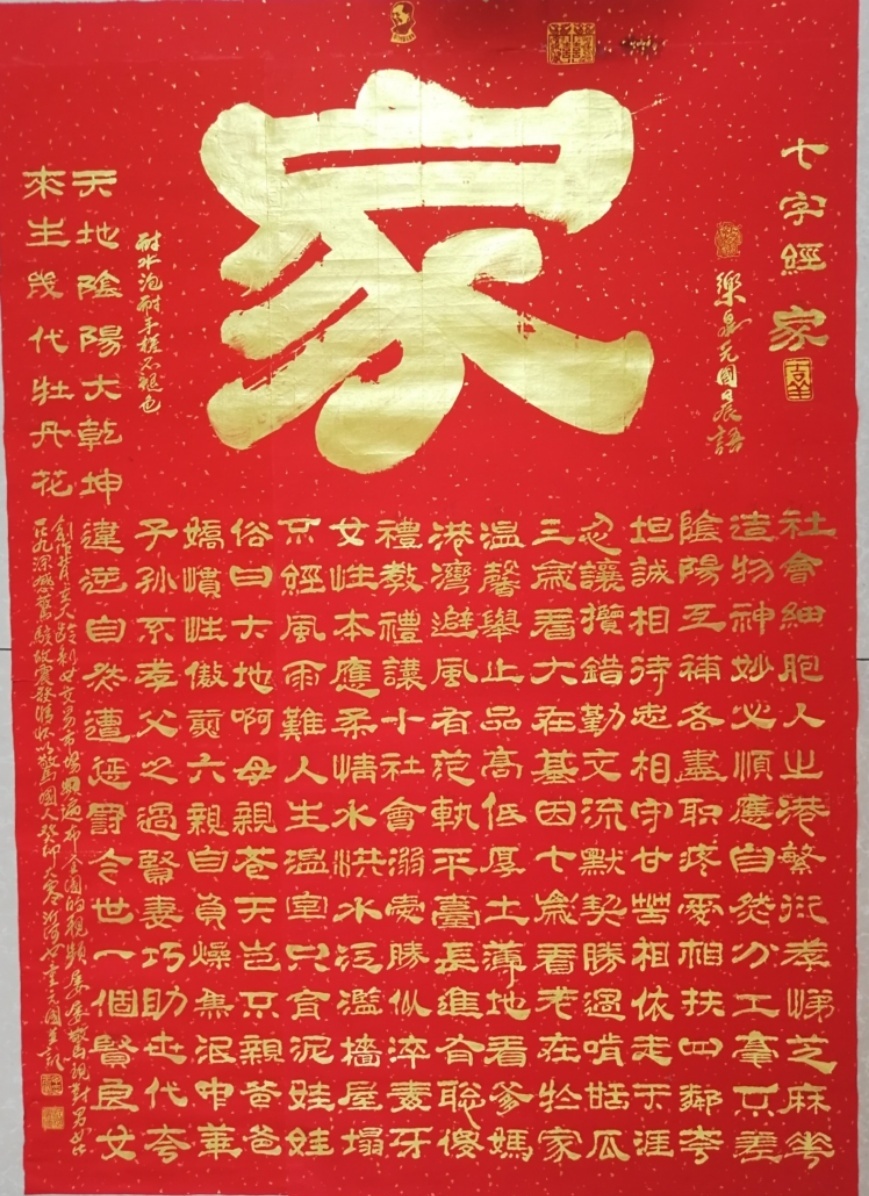 七字經 家
元國晨語
家
社會細胞人之港繁衍孝悌芝麻花
造物神妙必順應自然分工毫不差
陰陽互補各盡職疼愛相扶四鄰夸
坦誠相待志相守甘苦相依走天涯
忍讓攬錯勤交流默契勝過啃甜瓜
三歲看大在基因七歲看老在於家
溫馨舉止品高低厚土薄地看爹媽
港灣避風有范軌平臺長進有聰傻
禮教禮讓小社會溺愛勝似淬毒牙
女性本應柔情水洪水泛濫牆屋塌
不經風雨難人生溫室只育泥娃娃
俗曰大地啊母親蒼天豈不親爸爸
嬌慣性傲煎六親自負燥焦泯中華
子孫不孝父之過賢妻巧助世代夸
違逆自然遭延罰今世一個賢良女
耐水泡耐手搓不褪色
天地陰陽大乾坤
來生幾代牡丹花